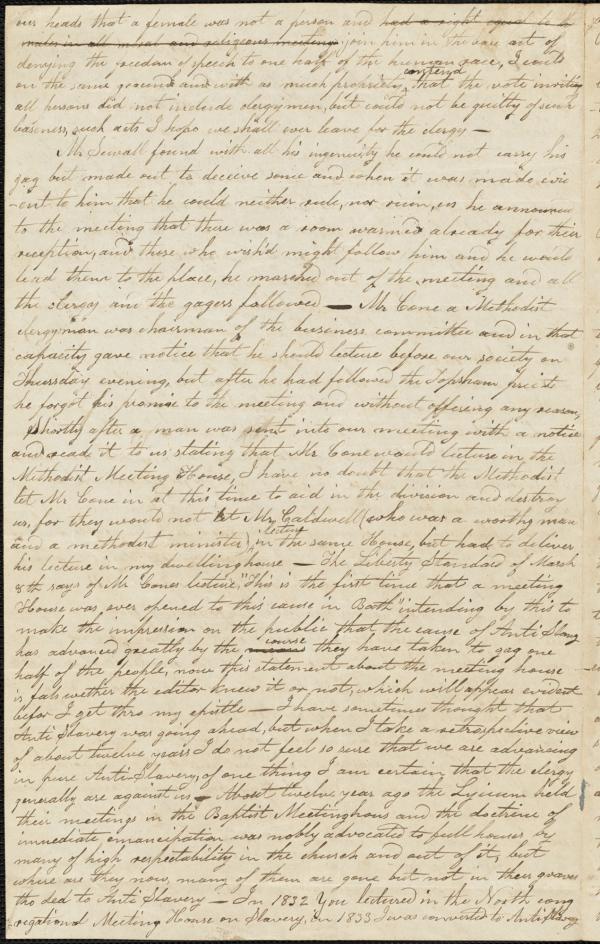 our heads that a female was not a person and had a right equal to the
males in all moral and religious meetings join him in the base act of
denying the freedom of speech to one half of the human race, I could
on the same ground and with as much propriety contend that the vote inviting
all persons did not include clergymen, but could not be guilty of such
baseness, such acts I hope we shall ever leave for the clergy —
Mr Sewall found with all his ingenuity he could not carry his
gag but made out to deceive some and when it was made evi
-ent to him that he could neither rule, nor ruin, us he announced
to the meeting that there was a room warmed already for their
reception, and those who wish'd might follow him and he would
lead them to the place, he marched out of the meeting and all
the clergy and the gagers followed — Mr Cone a Methodist
clergyman was chairman of the business committee and in that
capacity gave notice that he should lecture before our society on
Thursday evening, but after he had followed the Topsham priest
he forgot his promise to the meeting and without offering any reason,
Shortly after a man was sent into our meeting with a notice
and read it to us stating that Mr Cone would lecture in the
Methodist Meeting House, I have no doubt that the Methodist
let Mr Cone in at this time to aid in the division and destroy
us, for they would not let Mr Caldwell (who was a worthy man
and a methodist minista) lecture in the same House, but had to deliver
his lecture in my dwellinghouse — The Liberty Standard of March
8th says of Mr Cones lecture, "This is the first time that a meeting
House was ever opened to this cause in Bath" intending by this to
make the impression on the public that the cause of Anti Slavy
has advanced greatly by the course they have taken to gag one
half of the people, now this statement about the meeting house
is fals wether the editor knew it or not, which will appear evident
befor I get thro my epistle — I have sometimes thought that
Anti Slavery was going ahead, but when I take a retrospective view
of about twelve years I do not feel so sure that we are advancing
in pure Anti Slavery, of one thing I am certain that the clergy
generally are against us — About twelve year ago the Lyceum held
their meetings in the Baptist Meetinghous and the doctrine of
immediate emancipation was nobly advocated to full houses by
many of high respectability in the church and out of it, but
where are they now, many of them are gone but not in their graves
tho ded to Anti Slavery — In 1832 You lectured in the North cong
regational Meeting House on Slavery, in 1833 I was converted to Anti Slavery